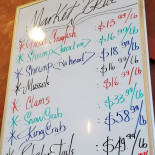 Market Price
* Crawfish $13.99/lb
* Shrimp head on $16.99/lb
* Shrimp no head $16.99/lb
* Mussels $16.99/lb
* Clams $16.99/lb
* Snow Crab $33.99/lb
* King Crab $58.99/lb
$49.99/lb